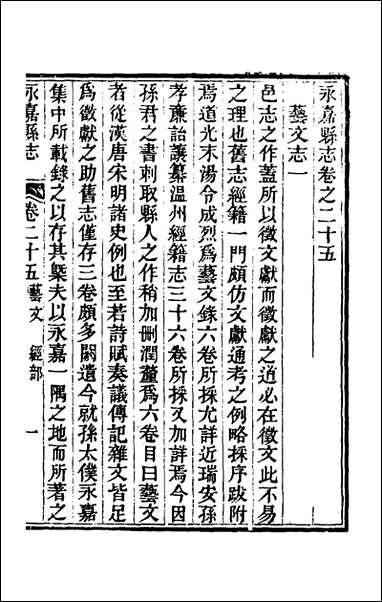 永嘉縣志卷之二十五
藝文志一
邑志之作蓋所以徵文獻而徵獻之道必在徵文此不易
之理也舊志經籍一門頗仿文獻通考之例略採序跋附
焉道光末湯令成烈爲藝文錄六卷所採尤詳近瑞安孫
孝廉詒讓纂温州經籍志三十六卷所採又加詳焉今因
孫君之書刺取縣人之作稍加刪潤釐爲六卷目曰藝文
者從漢唐宋明諸史例也至若詩賦奏議傳記雜文皆足
爲徵獻之助舊志僅存三卷頗多闕遺今就孫太僕永嘉
集中所載錄之以存其槩夫以永嘉一隅之地而所著之
永嘉縣志
卷二十五藝文 經部
一